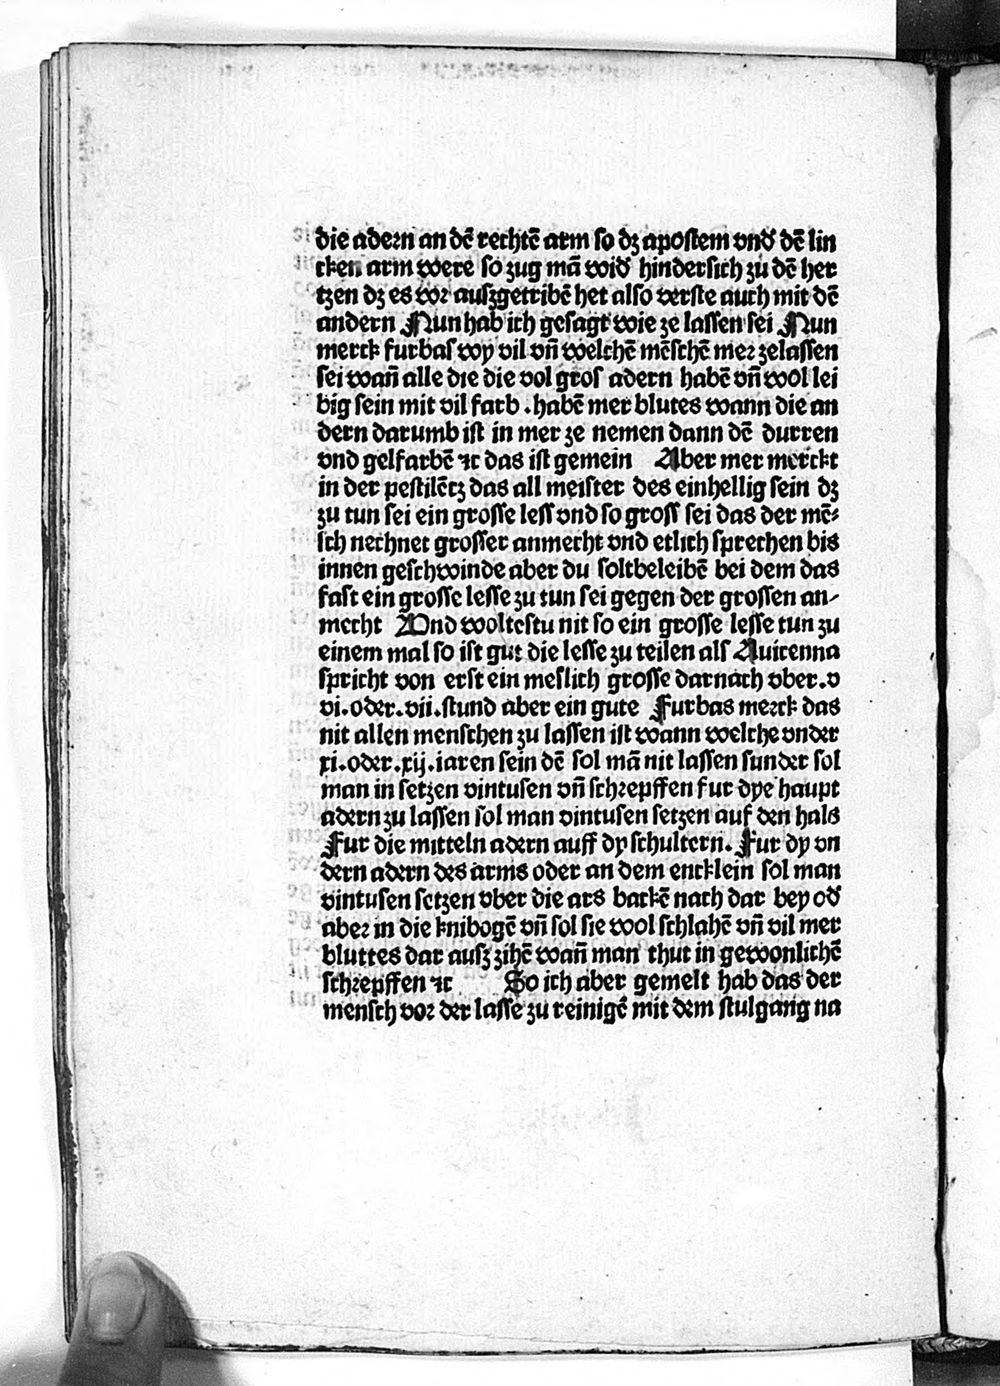 die adern an dē rechtē arm so dz apostem vnd dē lin
cken arm were so zug mā wid hindersich zu dē her
tzen dz es vor auszgetribē het also verste auch mit dē
andern Nun hab ich gesagt wie ze lassen sei Nun
merck furbas wy vil vn̄ welchē mēschē mer zelassen
sei wan̄ alle die die vol gros adern habē vn̄ wol lei
big sein mit vil farb . habē mer blutes wann die an
dern darumb ist in mer ze nemen dann dē durren
vnd gelfarbē ⁊c das ist gemein Aber mer merckt
in der pestilētz das all meister des einhellig sein dz
zu tun sei ein grosse less vnd so gross sei das der mē⸗
sch nechnet grosser anmecht vnd etlich sprechen bis
innen geschwinde aber du soltbeleibē bei dem das
fast ein grosse lesse zu tun sei gegen der grossen an⸗
mecht Vnd woltestu nit so ein grosse lesse tun zu
einem mal so ist gut die lesse zu teilen als Auicenna
spricht von erst ein meslich grosse darnach vber . v
vi . oder . vii . stund aber ein gute Furbas merck das
nit allen menschen zu lassen ist wann welche vnder
xi . oder . xij . iaren sein dē sol mā nit lassen sunder sol
man in setzen vintusen vn̄ schrepffen fur dye haupt
adern zu lassen sol man vintusen setzen auf den hals
Fur die mitteln adern auff dy schultern . Fur dy vn
dern adern des arms oder an dem encklein sol man
vintusen setzen vber die ars backē nach dar bey od
aber in die knibogē vn̄ sol sie wol schlahē vn̄ vil mer
bluttes dar ausz zihē wan̄ man thut in gewonlichē
schrepffen ⁊c So ich aber gemelt hab das der
mensch vor der lasse zu reinigē mit dem stulgang na